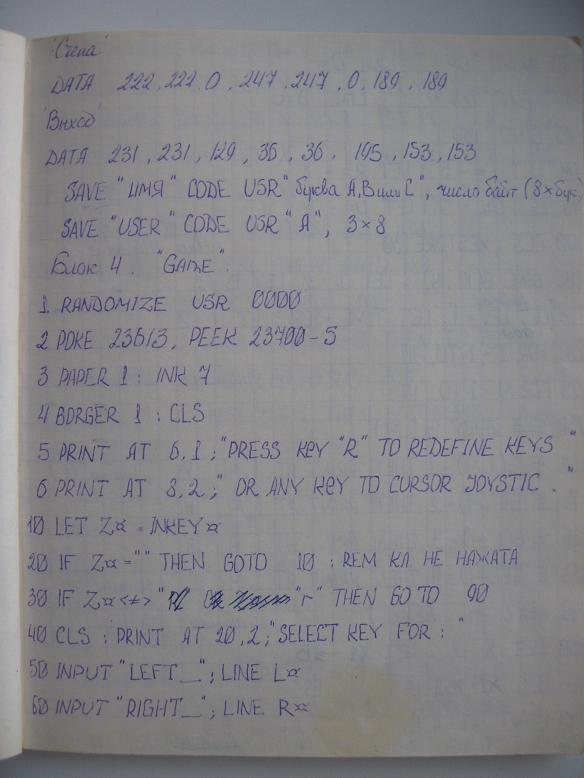 "Стена"
DATA 222, 222, 0, 247, 247, 0, 189, 189
"Выход"
DATA 231, 231, 129, 36, 36, 195, 153, 153
SAVE "ИМЯ" CODE USR "буква А, В или С", число байт (8×бук.
SAVE "USER" CODE USR "A", 3×8
Блок 4. "GAME".
1 RANDOMIZE USR 0000
2 POKE 23613, PEEK 23700-5
3 PAPER 1 : INK 7
4 BORGER 1 : CLS
5 PRINT AT 6,1 ; "PRESS KEY "R" TO REDEFINE KEYS "
6 PRINT AT 8,2 ; " OR ANY KEY TO CURSOR JOYSTIC . "
10 LET Z¤ = INKEY¤
20 IF Z¤ = "" THEN GOTO 10 : REM КЛ. НЕ НАЖАТА
30 IF Z¤ <≠> "r" THEN GO TO 90
40 CLS : PRINT AT 20,2 ; "SELECT KEY FOR : "
50 INPUT "LEFT_" ; LINE L¤
60 INPUT "RIGHT_" ; LINE R¤